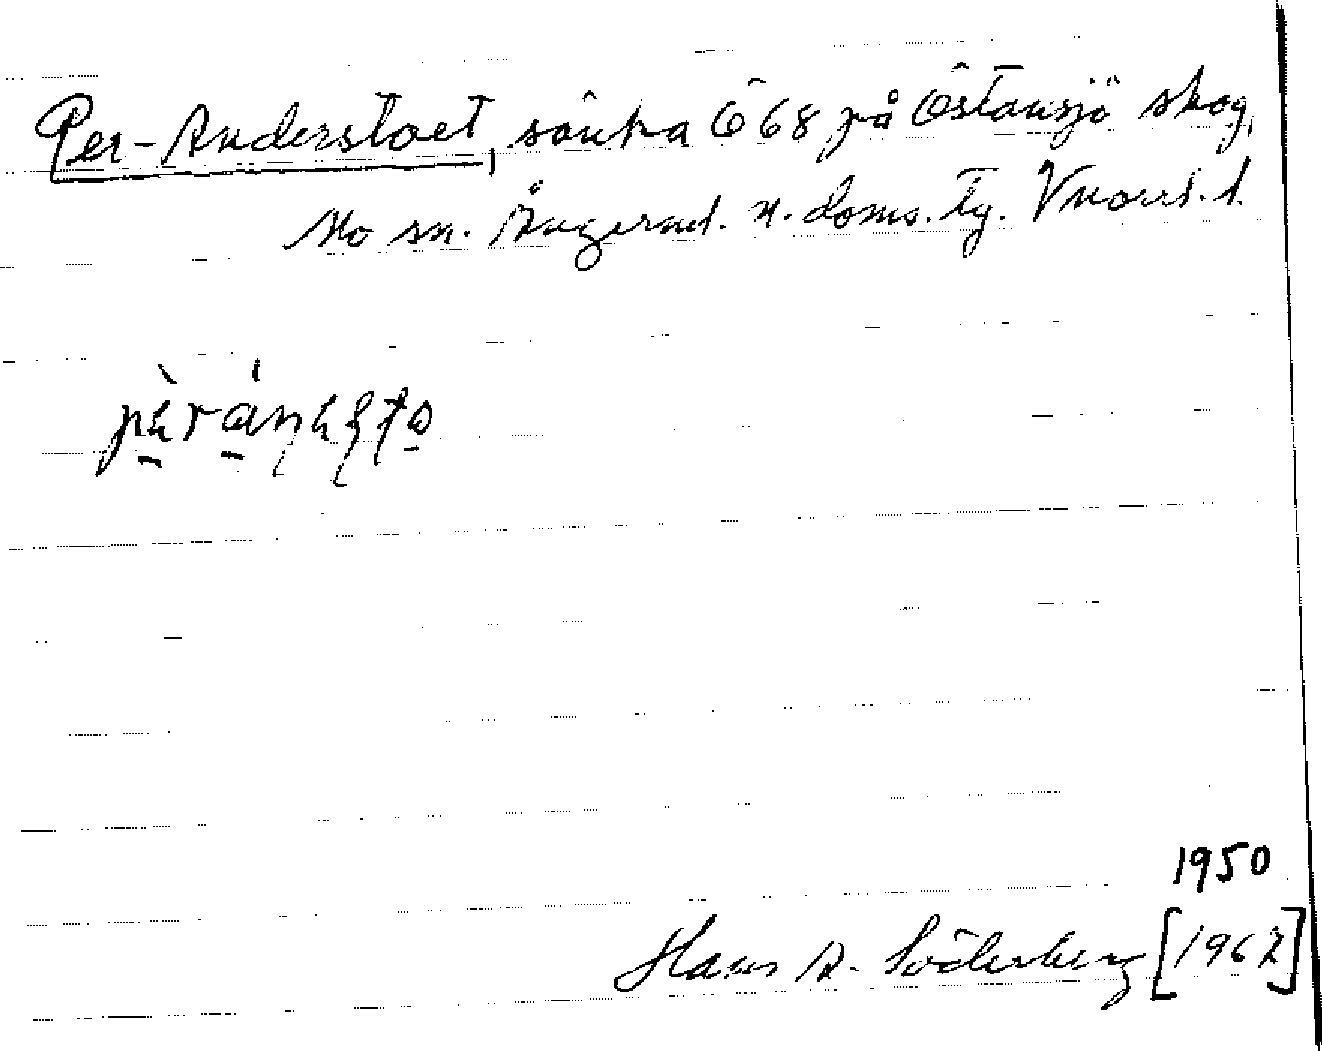 Per-Anderstoet, sänka Ö 68 på Östansjö skog,
Mo sn. Ångerml. n. doms. tg. Vnorrl. l.
1950
Hans A. Söderberg [1967]